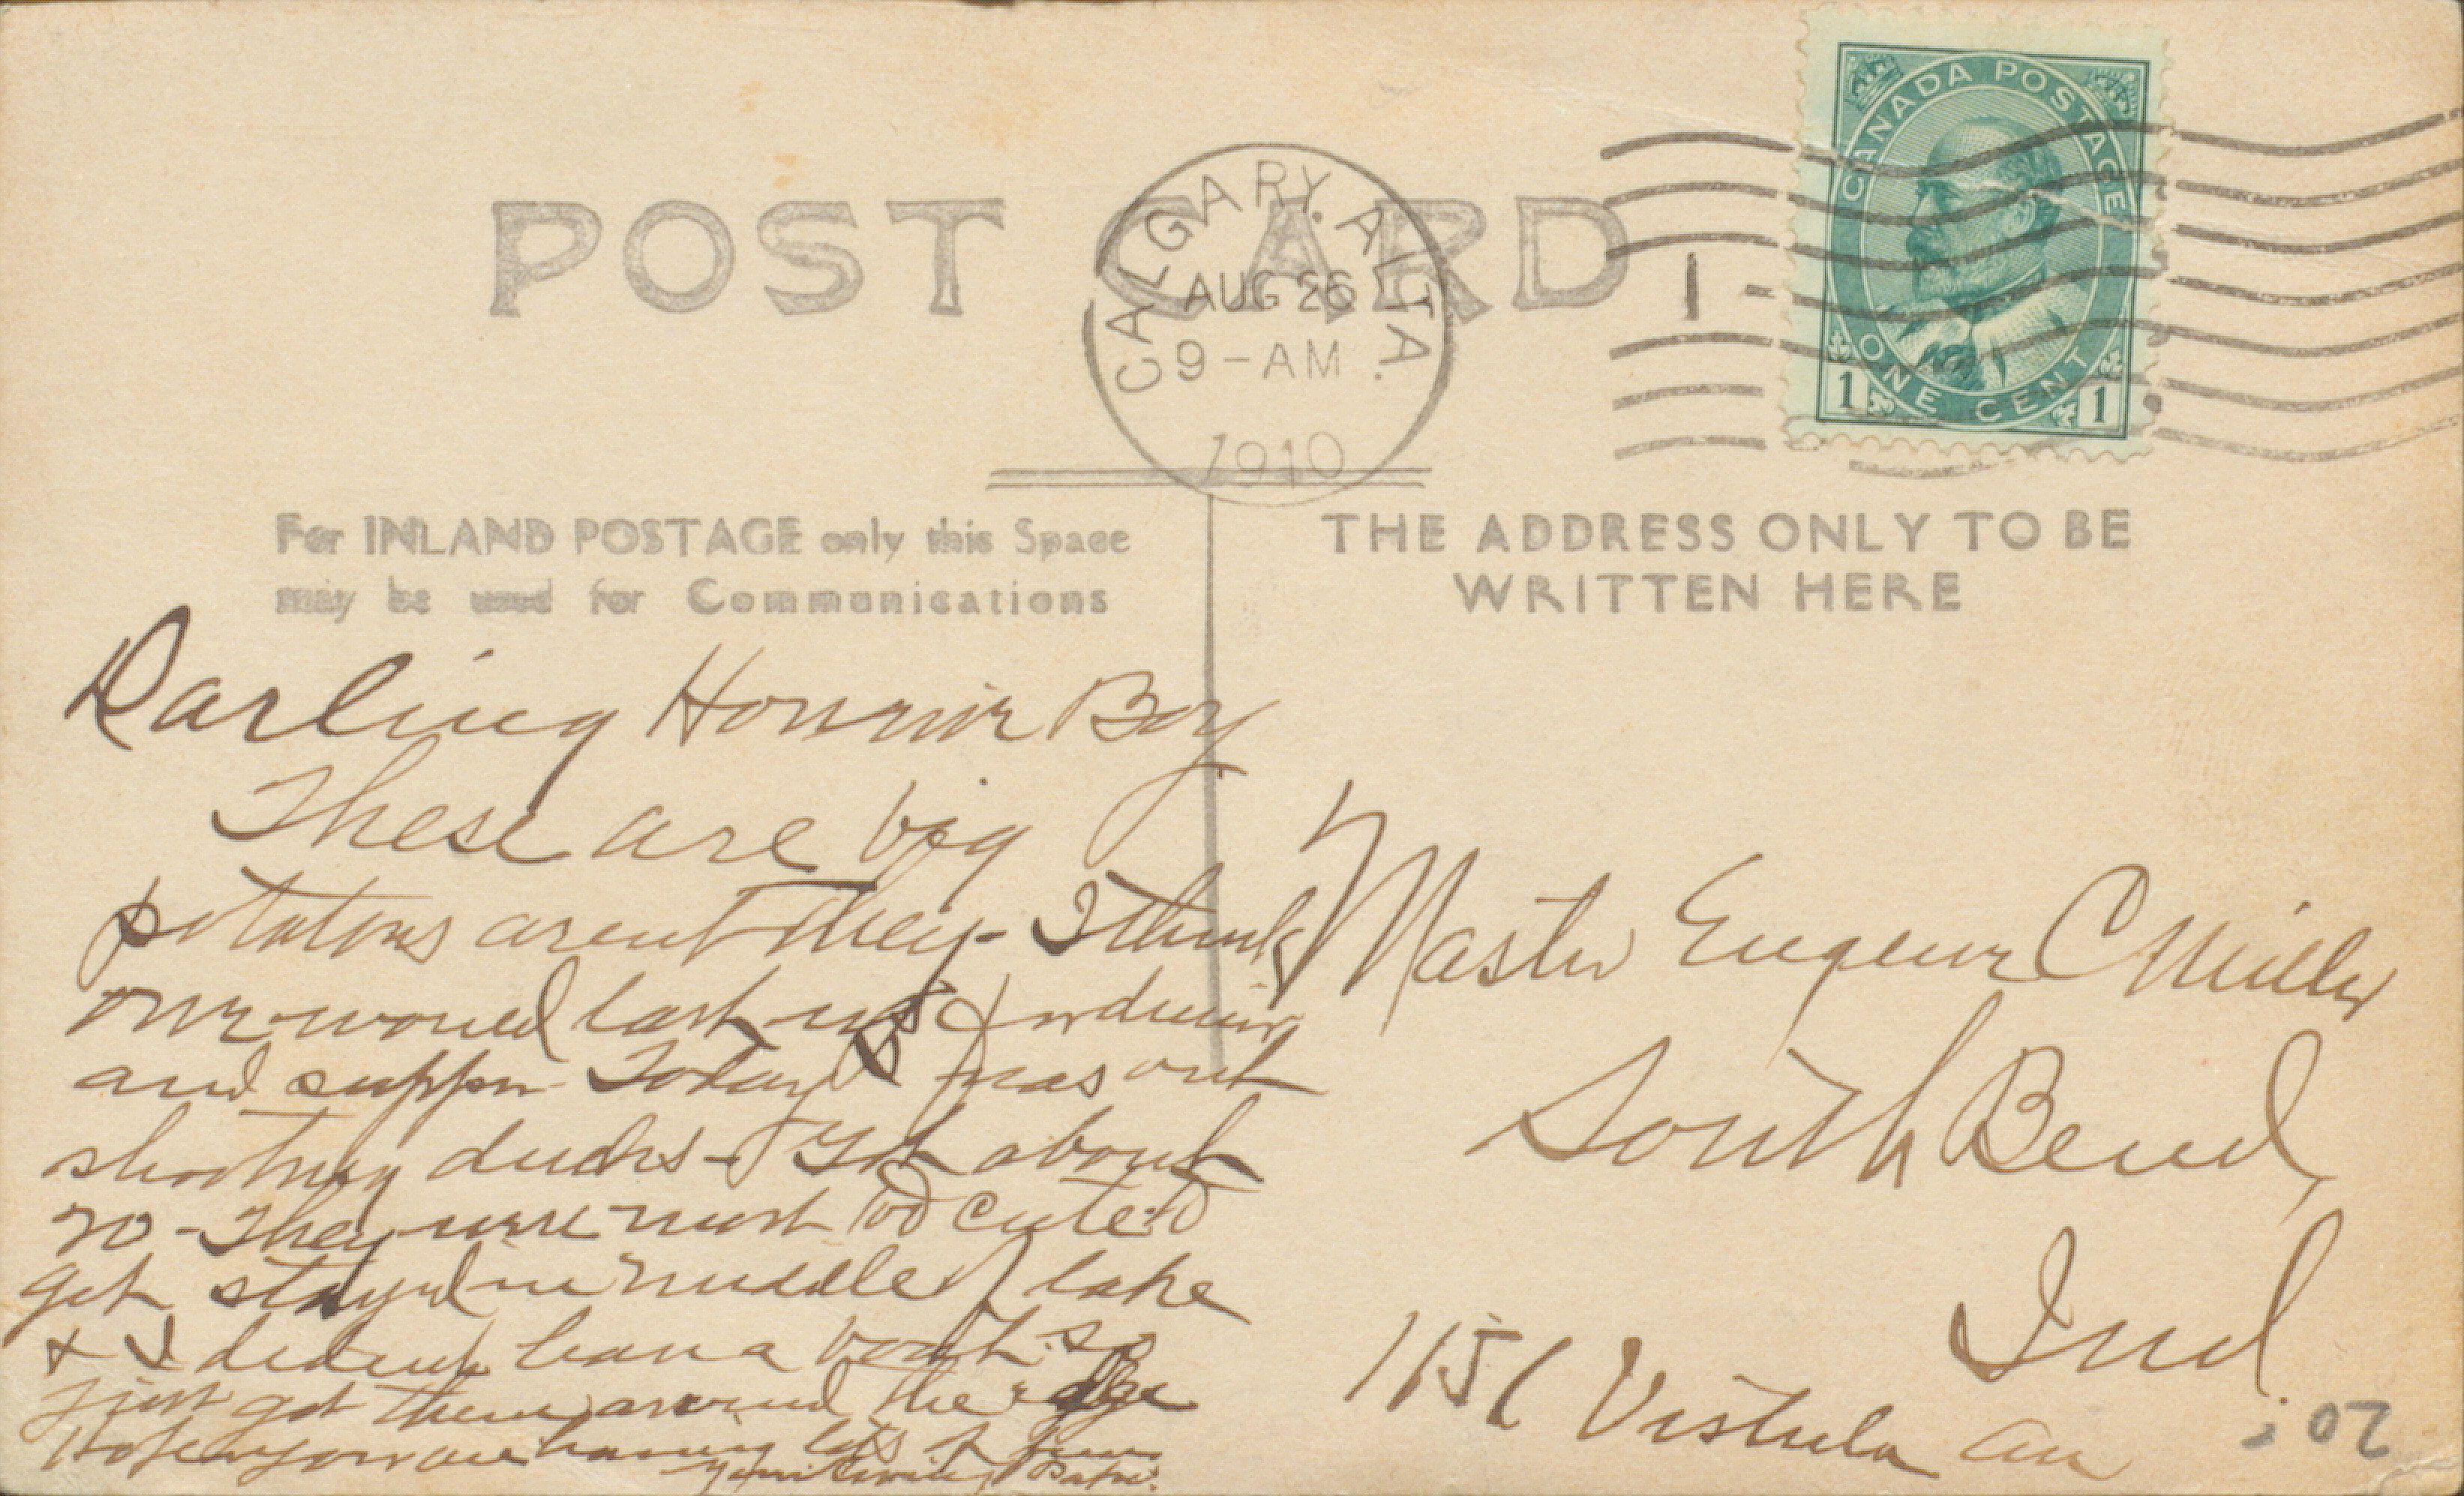 POST CARD
CALGARY. ALTA.
AUG 26
9-AM
1910
1
CANADA POSTAGE
ONE CENT
1 1
For INLAND POSTAGE only this Space
may be used for Communications
THE ADDRESS ONLY TO BE
WRITTEN HERE
Darling Honnie Boy
These are big
potatoes arent they - I think
one would last us for dinner
and supper Today I was out
shooting ducks - Got about
20 - They were most too cute to
get stayed in middle of lake
& I didnt have a boat so
just got them around the edge
Hope you are having lots of fun
Your loving Papa.
Master Eugene C Miller
South Bend,
Ind.
1156 Vistula Av
.02